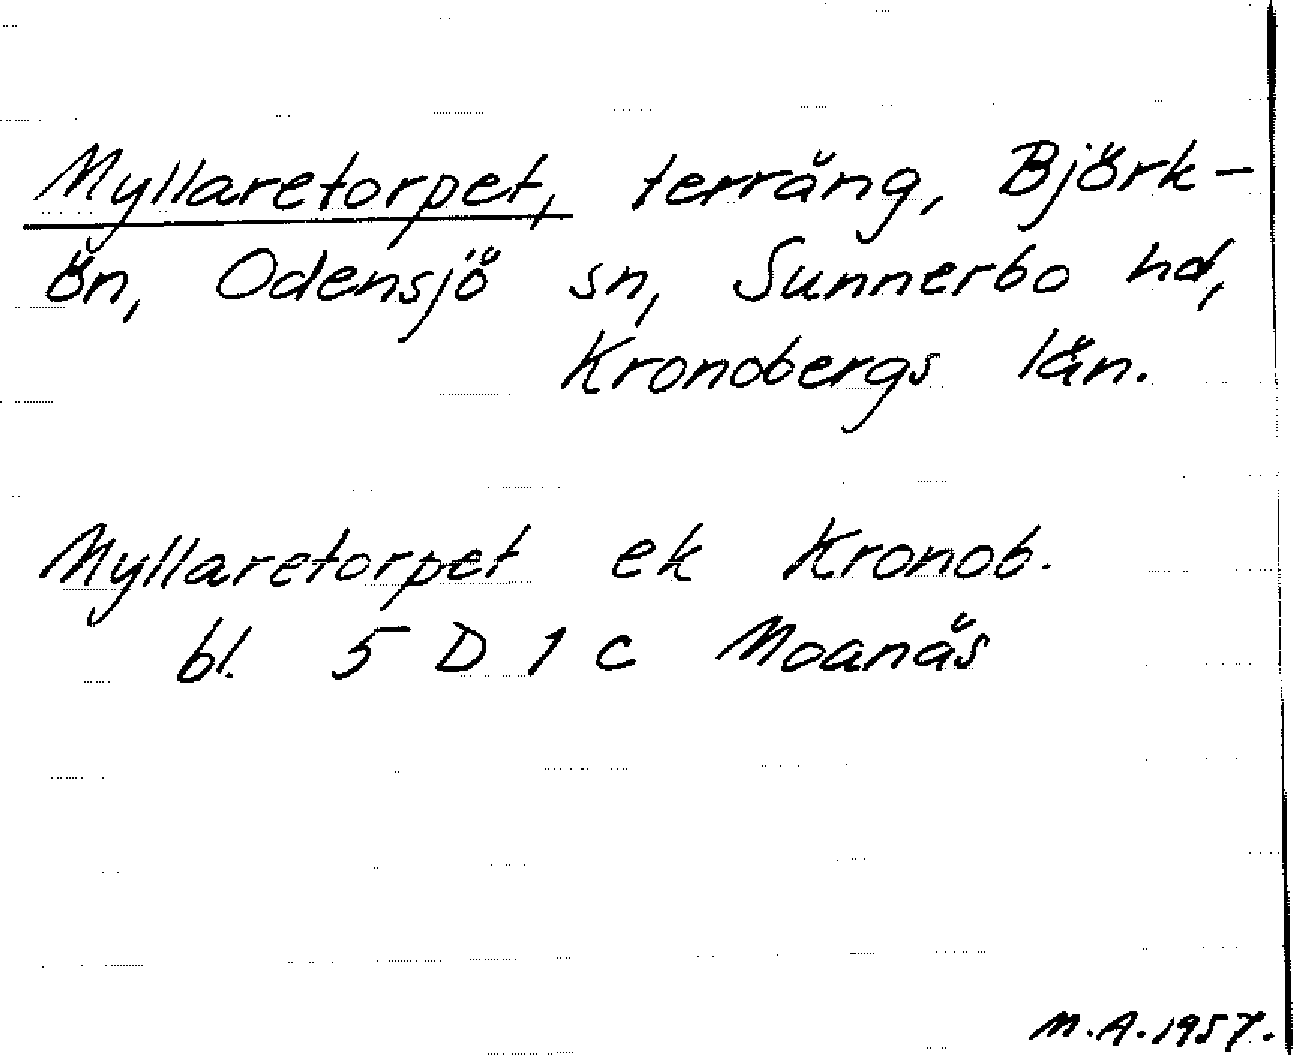 Myllaretorpet, terräng, Björk-
ön, Odensjö sn, Sunnerbo hd,
Kronobergs län.
Myllaretorpet ek Kronob.
bl. 5 D 1 c Moanäs
M.A. 1957.